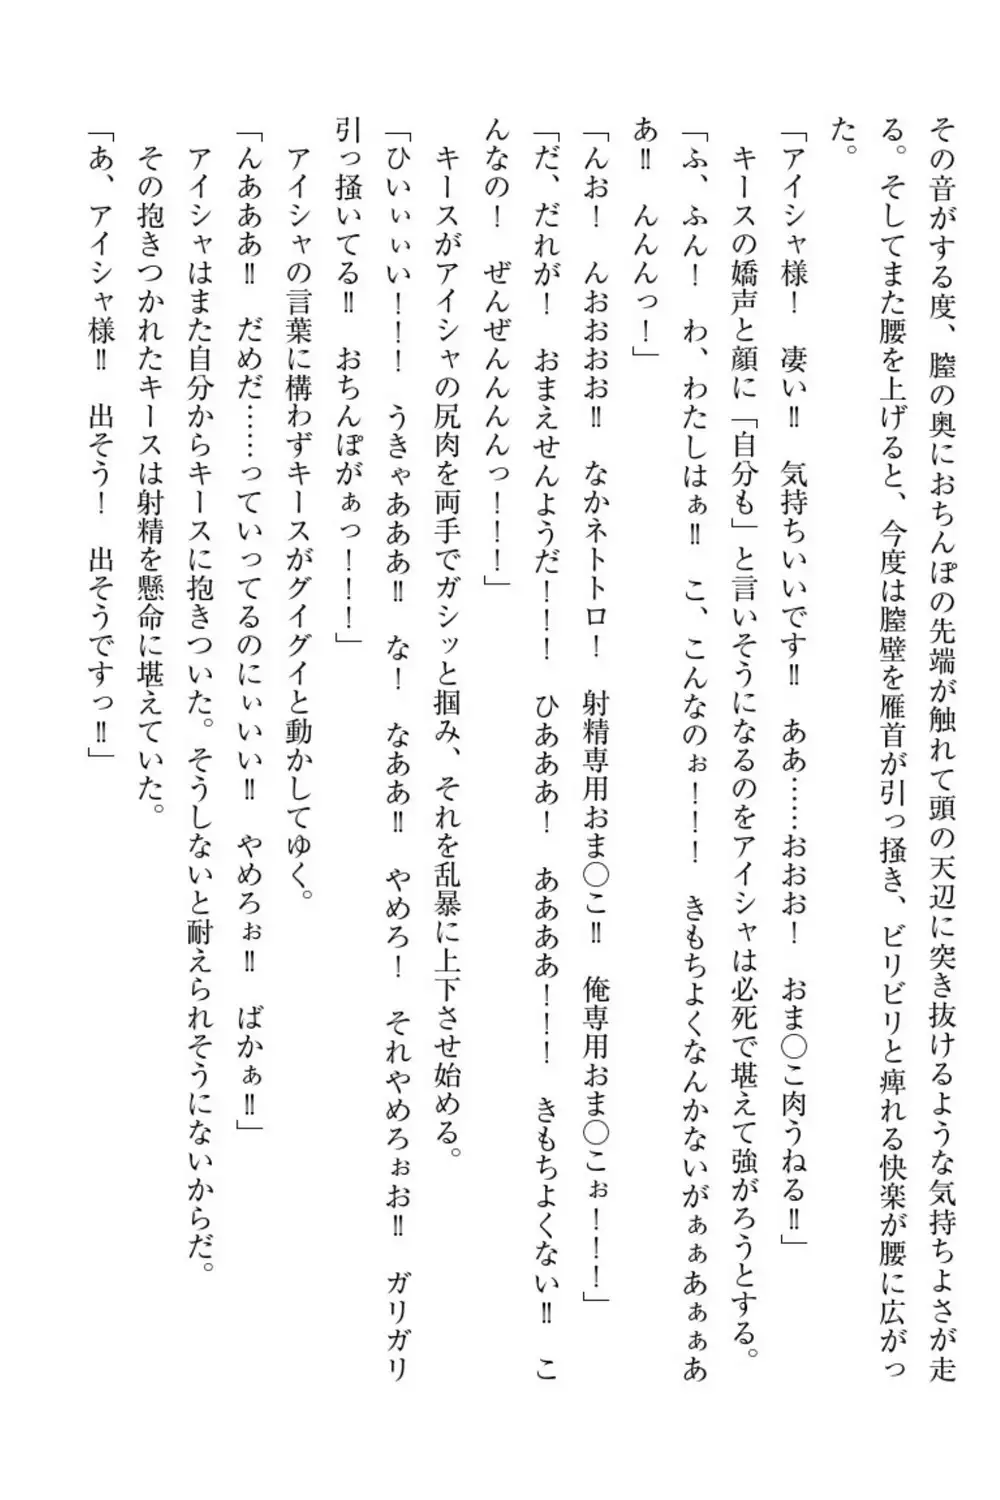 その音がする度、膣の奥におちんぽの先端が触れて頭の天辺に突き抜けるような気持ちよさが走
る。そしてまた腰を上げると、今度は膣壁を雁首が引っ掻き、ビリビリと痺れる快楽が腰に広がっ
た。
「アイシャ様！　凄い‼　気持ちいいです‼　ああ……おおお！　おま◯こ肉うねる‼」
　キースの嬌声と顔に「自分も」と言いそうになるのをアイシャは必死で堪えて強がろうとする。
「ふ、ふん！　わ、わたしはぁ‼　こ、こんなのぉ！！！　きもちよくなんかないがぁぁあぁぁあ
あ‼　んんんっ！」
「んお！　んおおおお‼　なかネトトロ！　射精専用おま◯こ‼　俺専用おま◯こぉ！！！」
「だ、だれが！　おまえせんようだ！！！　ひあああ！　ああああ！！！　きもちよくない‼　こ
んなの！　ぜんぜんんんんっ！！！」
　キースがアイシャの尻肉を両手でガシッと掴み、それを乱暴に上下させ始める。
「ひいぃぃぃい！！！　うきゃあああ‼　な！　なああ‼　やめろ！　それやめろぉお‼　ガリガリ
引っ掻いてる‼　おちんぽがぁっ！！！」
　アイシャの言葉に構わずキースがグイグイと動かしてゆく。
「んあああ‼　だめだ……っていってるのにぃいい‼　やめろぉ‼　ばかぁ‼」
　アイシャはまた自分からキースに抱きついた。そうしないと耐えられそうにないからだ。
　その抱きつかれたキースは射精を懸命に堪えていた。
「あ、アイシャ様‼　出そう！　出そうですっ‼」